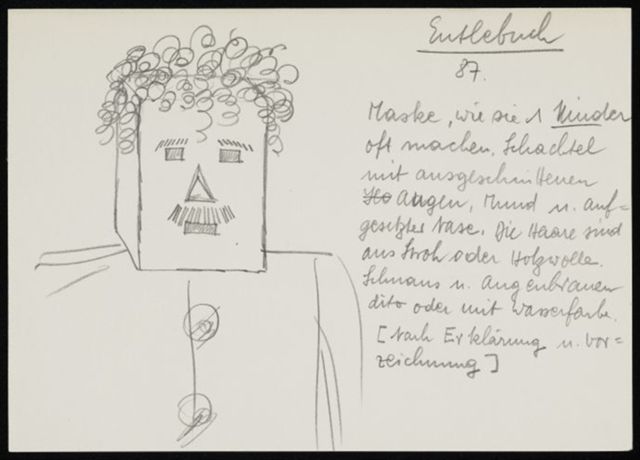 Entlebuch
87.
Maske, wie sie Kinder
oft machen. Schachtel
mit ausgeschnittenen
Augen, Mund u. auf-
gesetzter Nase. Die Haare sind
aus Stroh oder Holzwolle.
Schnauz u. Augenbrauen
dito oder mit Wasserfarbe.
[Nach Erklärung u. Vor-
zeichnung]